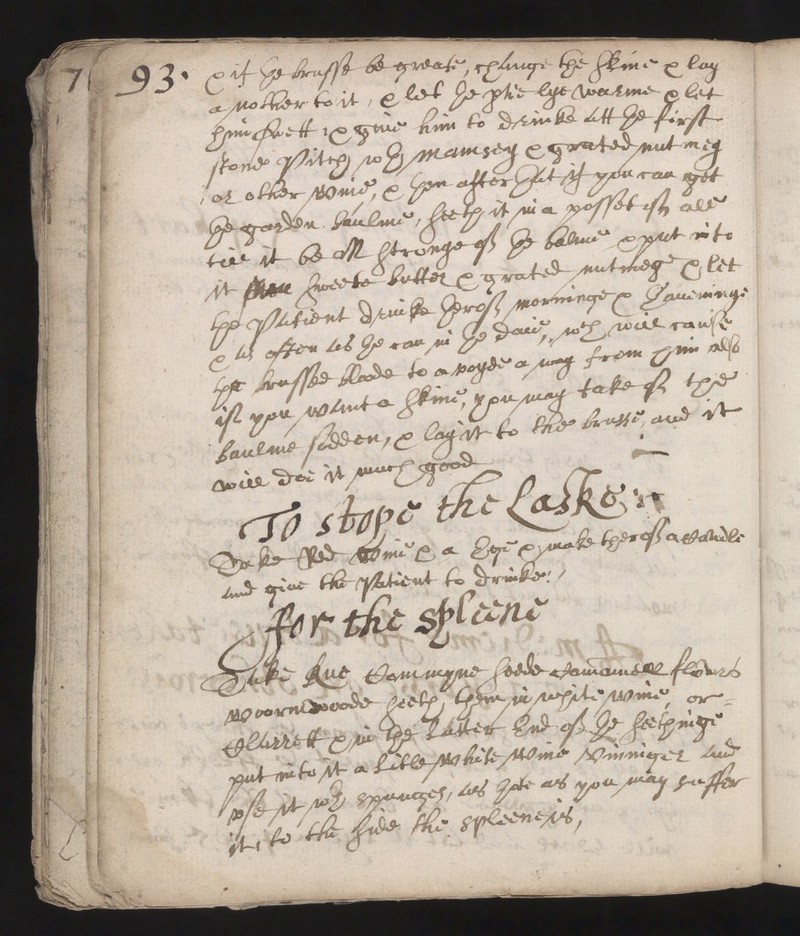 7
93.
& if ye brusse be greate, change the skine & lay
a nother to it, & let ye ptie lye warme & let
him swett, & give him to drinke att ye first
stone pitch wth mamsey & grated nut meg
or other wine, & then after yat if you can get
ye garden baulme, seeth it in a posset of ale
till it be all stronge of ye balme & put into
it sweete butter & grated nutmege & let
the patient drinke yerof morninge & Eaueninge
& as often as he can in ye daie, wch will cause
the brussed blode to a voyde a way from him also
if you want a skine, you may take of the
baulme sodden, & lay it to the brusse, and it
will doe it much good
To stope the Laske
Take Red wine & a Ege & make therof a Caudle
and give the Patient to drinke:
for the spleene
Take Rue Commyne seede Camamell flowrs
woormwoode seeth them in white wine, or
Clarrett & in the Latter End of ye seethinge
put into it a litle white wine Vinniger and
vse it wth spunges, as hote as you may suffer
it, to the side the spleene is,